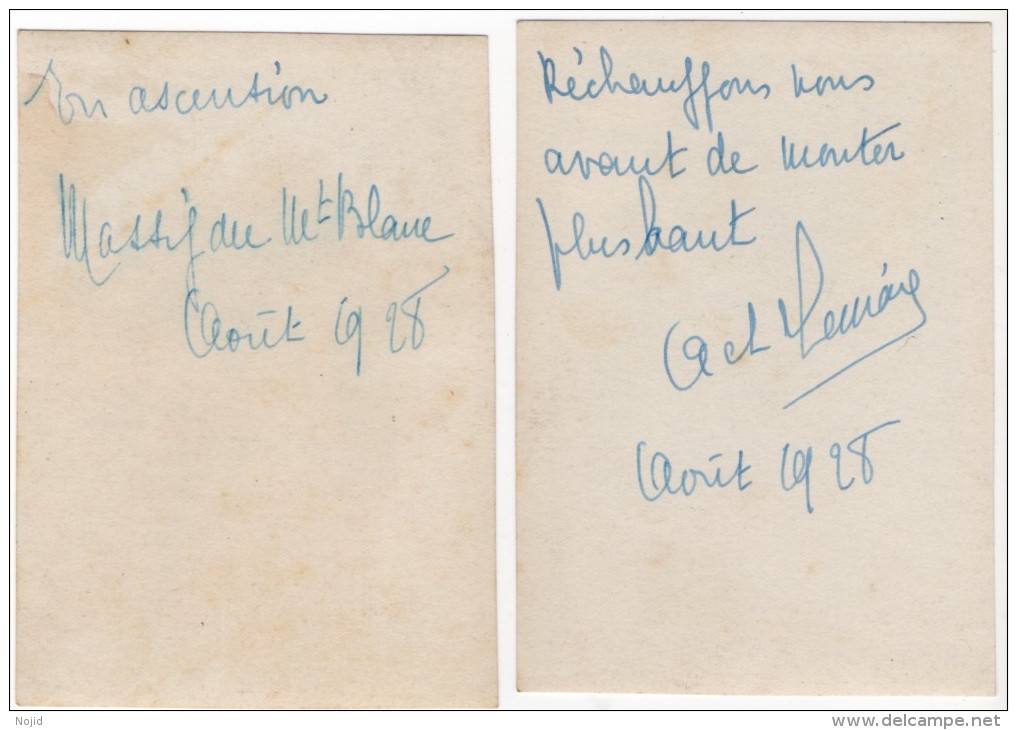 En ascention
Massif du Mt Blanc
Août 1928
Réchauffons nous
avant de monter
plus haut
Août 1928
Nojid
www.delcampe.net